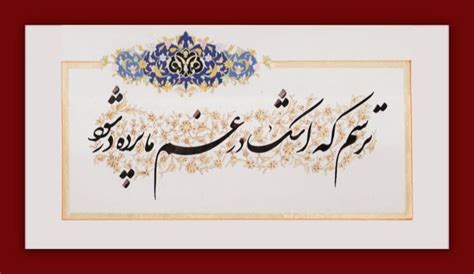 ترسم که اشک در غم ما پرده در شود